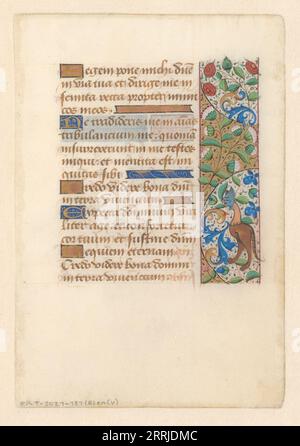 Legem pone michi dñe
in via tua et dirige me in
semita recta propter inimi
cos meos.
Ne tradideris me in aías
tribulantium me: quoniã
insurrexerunt in me testes
iniqui: et mentita est ini
quitas sibi
Credo videre bona dñi
in terra viventium
Expecta dominum viri
liter age et confortetur
cor tuum et sustine dñm
Requiem eternam
Credo videre bona domini
in terra viventium
RRJDMC